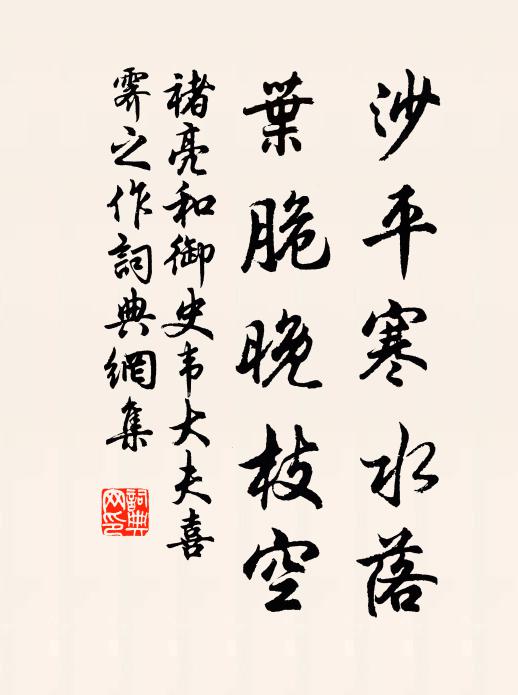 沙平寒水落
葉脆晚枝空
褚亮和御史韦大夫喜
霽之作詞典網集
詞典网印